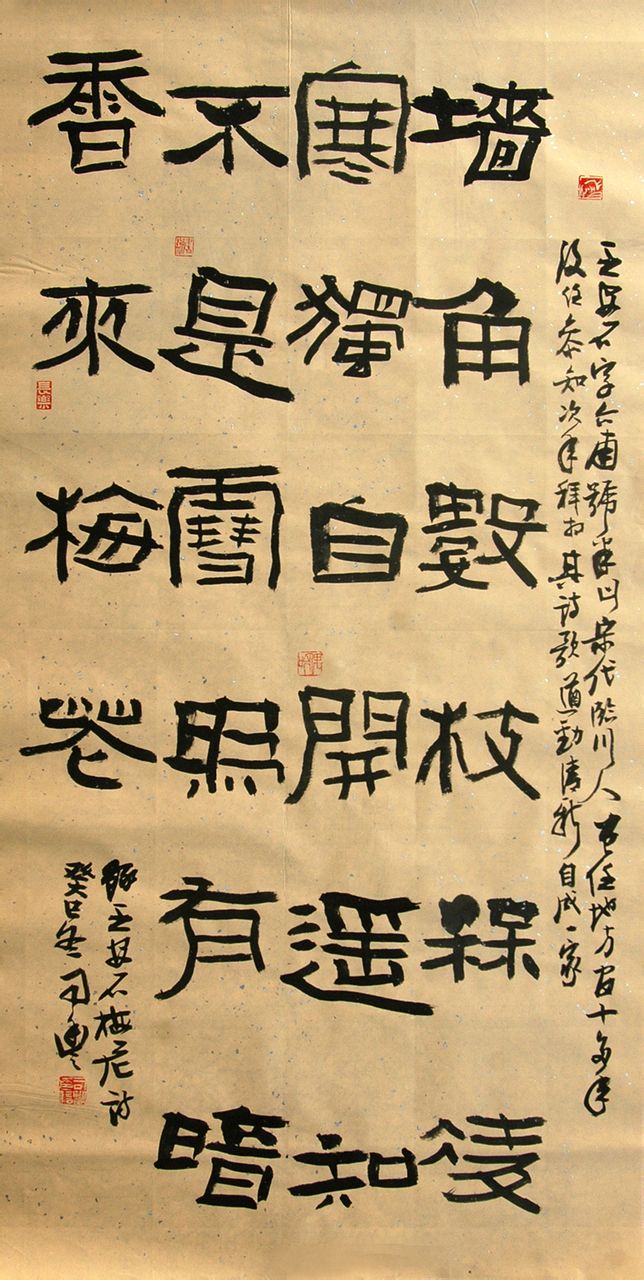 王安石字介甫號半山宋代臨川人曾任地方官十多年
後任参知次年拜相其詩歌遒勁清新自成一家
墻角數枝槑凌
寒獨自開遥知
不是雪為有暗
香來梅花
錄王安石梅花詩
癸巳冬司